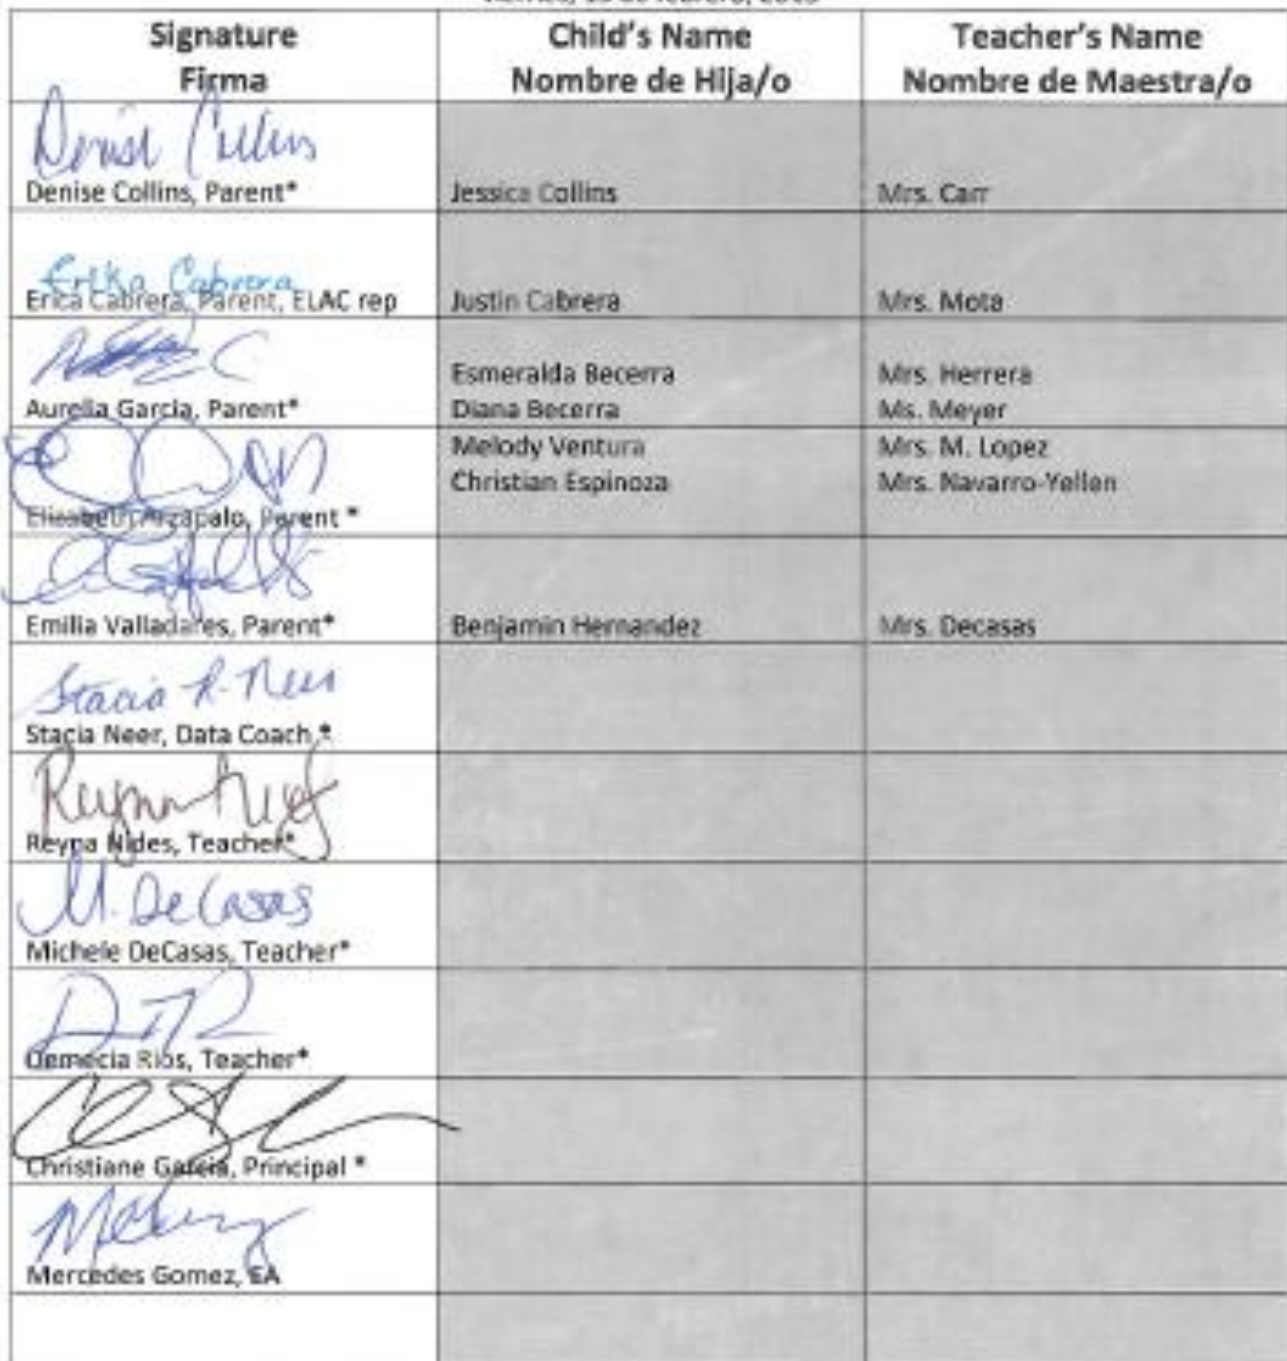 Signature
Firma
Child's Name
Nombre de Hija/o
Teacher's Name
Nombre de Maestra/o
Denise Collins
Denise Collins, Parent*
Jessica Collins
Mrs. Carr
Erika Cabrera
Erica Cabrera, Parent, ELAC rep
Justin Cabrera
Mrs. Mota
Aurelia Garcia, Parent*
Esmeralda Becerra
Diana Becerra
Mrs. Herrera
Ms. Meyer
Elizabeth Arzapalo, Parent *
Melody Ventura
Christian Espinoza
Mrs. M. Lopez
Mrs. Navarro-Yellen
Emilia Valladares, Parent*
Benjamin Hernandez
Mrs. Decasas
Stacia R. Neer
Stacia Neer, Data Coach *
Reyna
Reyna Nides, Teacher*
M. DeCasas
Michele DeCasas, Teacher*
Demecia Rios, Teacher*
Christiane Garcia, Principal *
Mercedes Gomez, EA